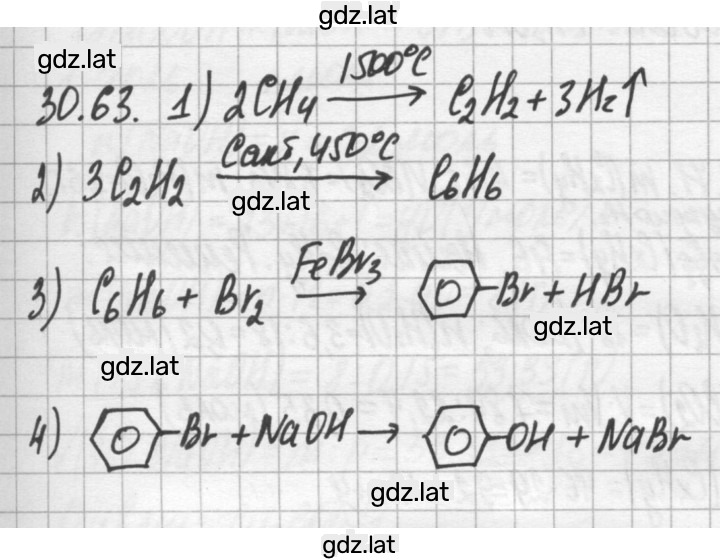 gdz.lat
gdz.lat
30.63. 1) 2CH₄ 1500°C → C₂H₂ + 3H₂↑
2) 3C₂H₂ Cакт, 450°C → C₆H₆
gdz.lat
3) C₆H₆ + Br₂ FeBr₃ → -Br + HBr
gdz.lat
gdz.lat
4) -Br + NaOH → -OH + NaBr
gdz.lat
gdz.lat